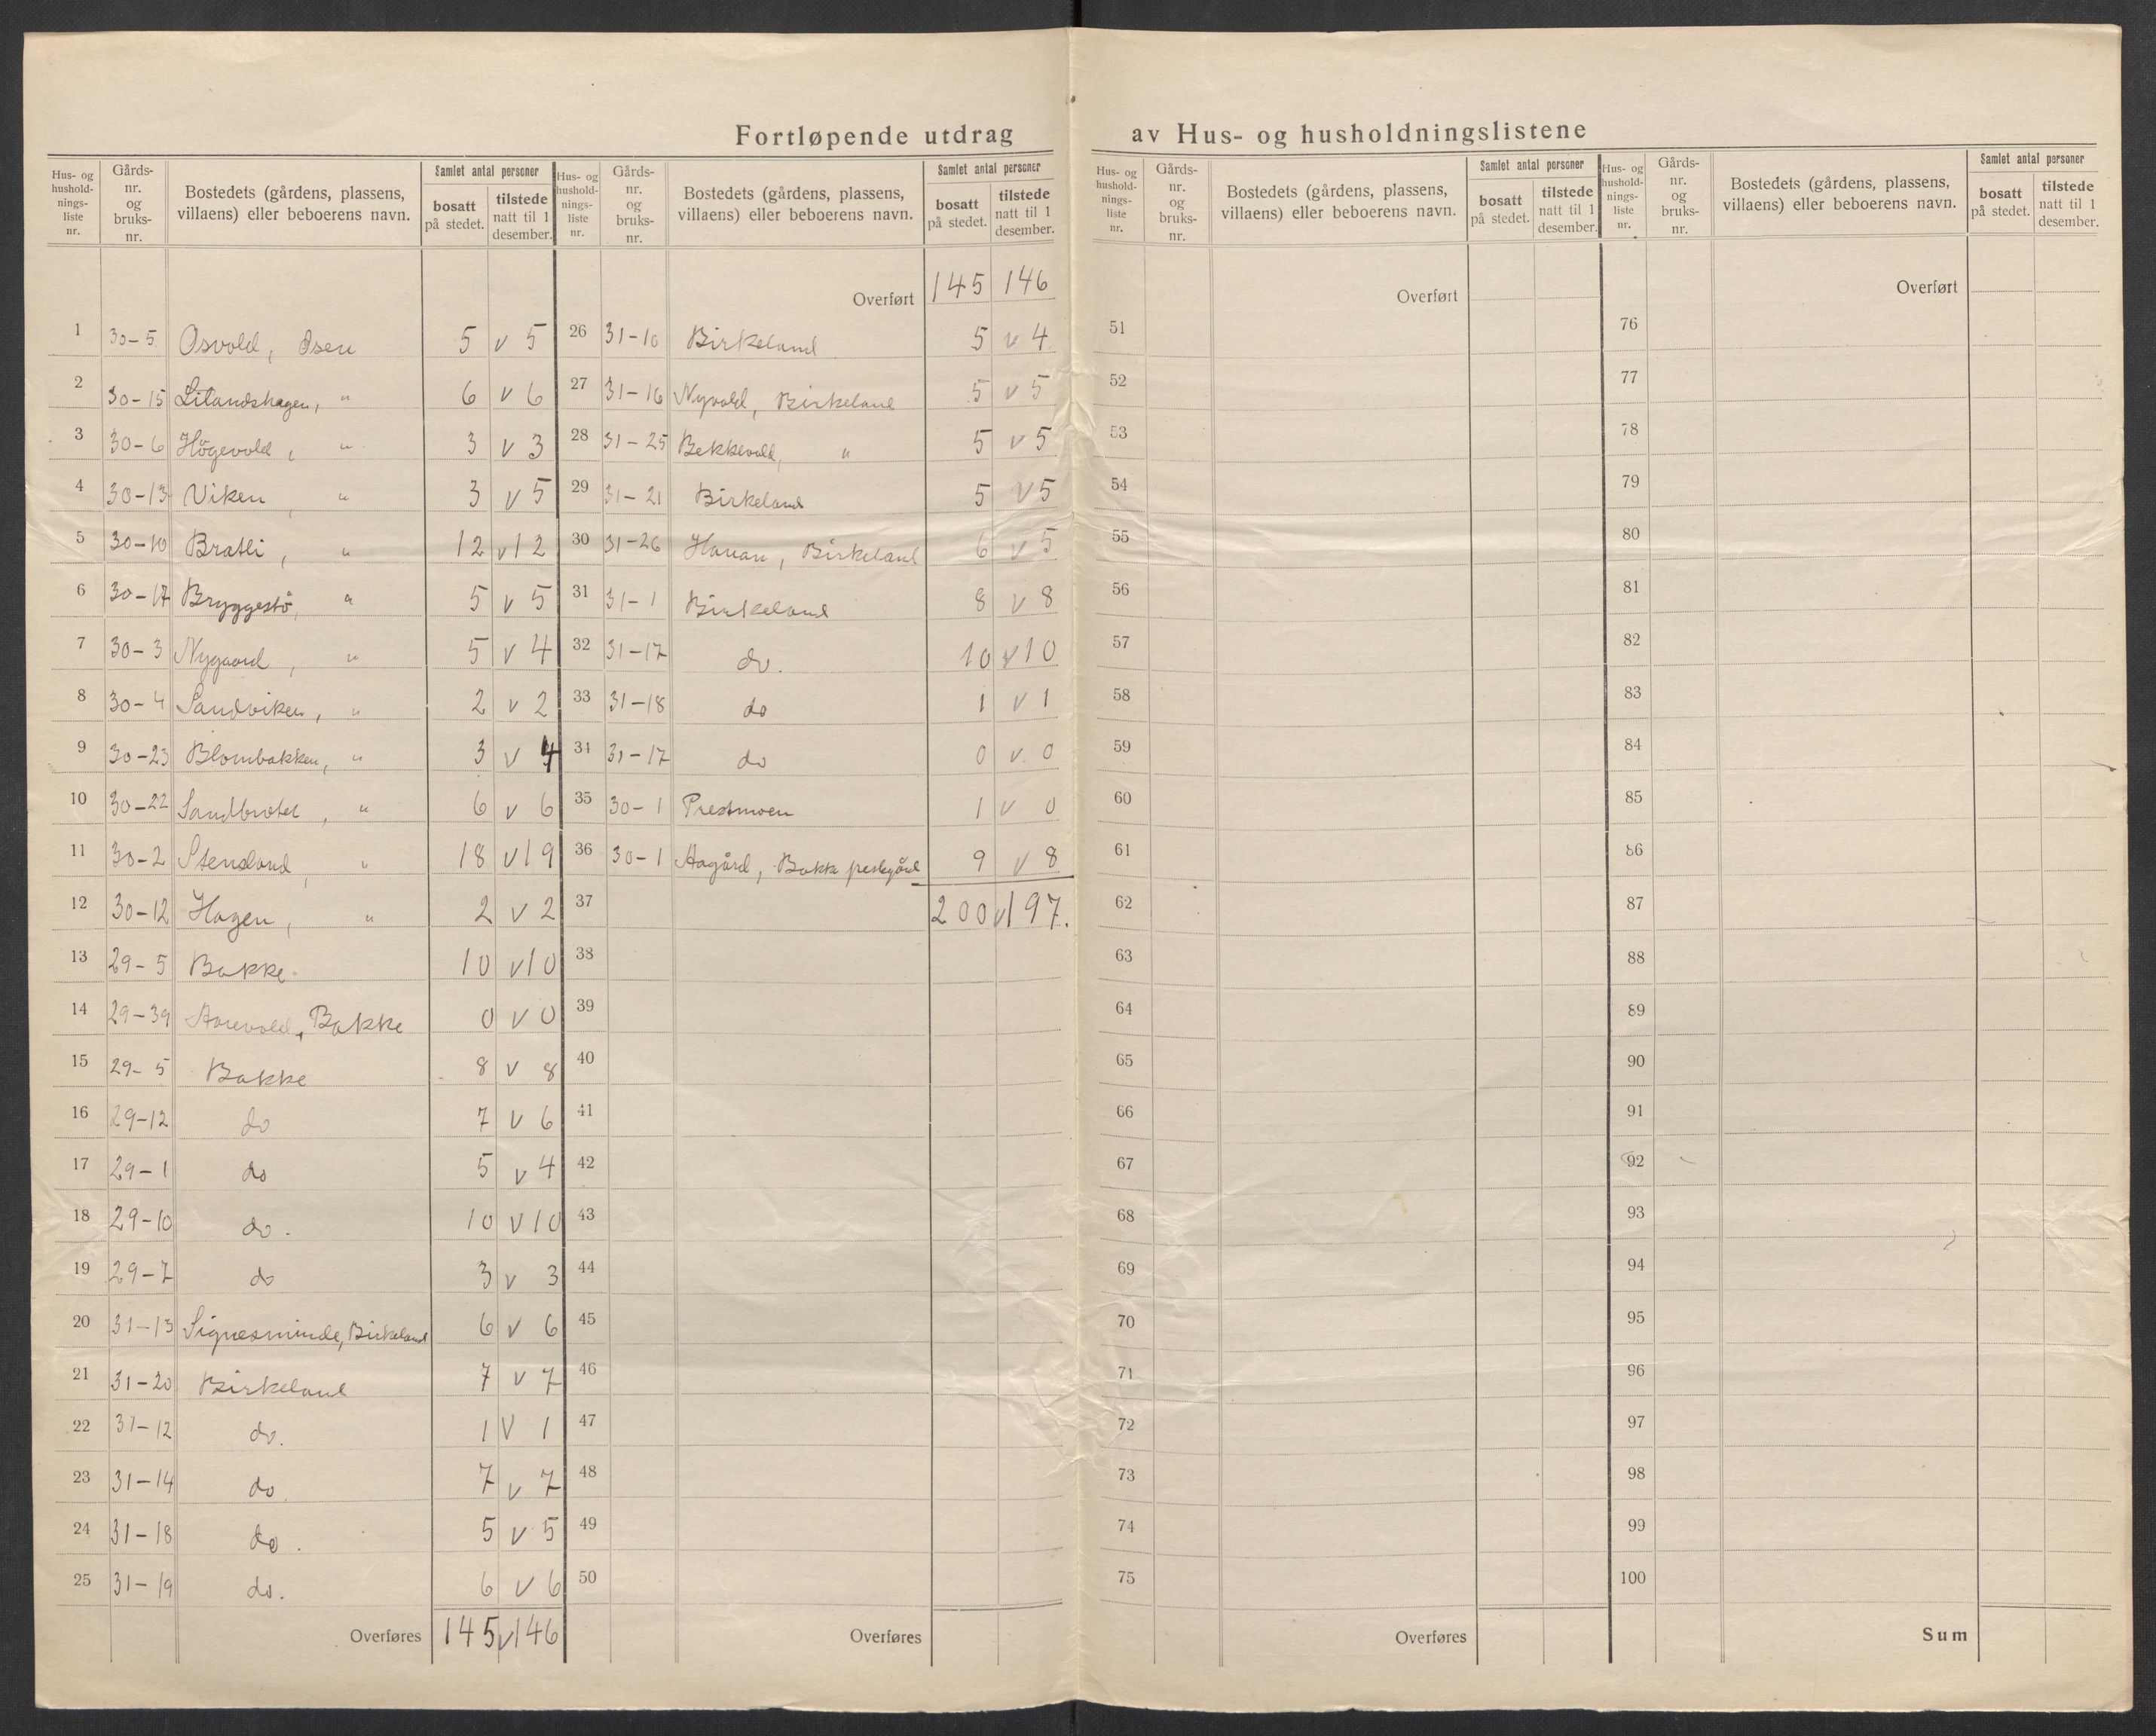 Fortløpende utdrag av Hus- og husholdningslistene
Hus- og hushold-nings-liste nr. Gårds-nr. og bruks-nr. Bostedets (gårdens, plassens, villaens) eller beboerens navn. Samlet antal personer bosatt på stedet. tilstede natt til 1 desember.
1 30-5 Osvold, Øsen 5 v 5
2 30-15 Litlandshagen, " 6 v 6
3 30-6 Högevold, " 3 v 3
4 30-13 Viken, " 3 v 5
5 30-10 Bratli, " 12 v 12
6 30-17 Bryggestö, " 5 v 5
7 30-3 Nygaard, " 5 v 4
8 30-4 Sandviken, " 2 v 2
9 30-23 Blombakken, " 3 v 4
10 30-22 Sandbrotet, " 6 v 6
11 30-2 Stensland, " 18 v 19
12 30-12 Hagen, " 2 v 2
13 29-5 Bakke. 10 v 10
14 29-39 Bakke 0 v 0
15 29-5 Bakke 8 v 8
16 29-12 do 7 v 6
17 29-1 do 5 v 4
18 29-10 do. 10 v 10
19 29-7 do 3 v 3
20 31-13 Signesminde, Birkeland 6 v 6
21 31-20 Birkeland 7 v 7
22 31-12 do. 1 v 1
23 31-14 do. 7 v 7
24 31-18 do. 5 v 5
25 31-19 do. 6 v 6
Overføres 145 v 146
Hus- og hushold-nings-liste nr. Gårds-nr. og bruks-nr. Bostedets (gårdens, plassens, villaens) eller beboerens navn. Samlet antal personer bosatt på stedet. tilstede natt til 1 desember.
Overført 145 146
26 31-10 Birkeland 5 v 4
27 31-16 Nyvold, Birkeland 5 v 5
28 31-25 Bekkevold, " 5 v 5
29 31-21 Birkeland 5 v 5
30 31-26 Birkeland 6 v 5
31 31-1 Birkeland 8 v 8
32 31-17 do. 10 v 10
33 31-18 do 1 v 1
34 31-17 do 0 v 0
35 30-1 Prestmoen 1 v 0
36 30-1 Aagård, Bakke prestegård 9 v 8
37 200 v 197.
38
39
40
41
42
43
44
45
46
47
48
49
50
Overføres
Hus- og hushold-nings-liste nr. Gårds-nr. og bruks-nr. Bostedets (gårdens, plassens, villaens) eller beboerens navn. Samlet antal personer bosatt på stedet. tilstede natt til 1 desember.
Overført
51
52
53
54
55
56
57
58
59
60
61
62
63
64
65
66
67
68
69
70
71
72
73
74
75
Overføres
Hus- og hushold-nings-liste nr. Gårds-nr. og bruks-nr. Bostedets (gårdens, plassens, villaens) eller beboerens navn. Samlet antal personer bosatt på stedet. tilstede natt til 1 desember.
Overført
76
77
78
79
80
81
82
83
84
85
86
87
88
89
90
91
92
93
94
95
96
97
98
99
100
Sum